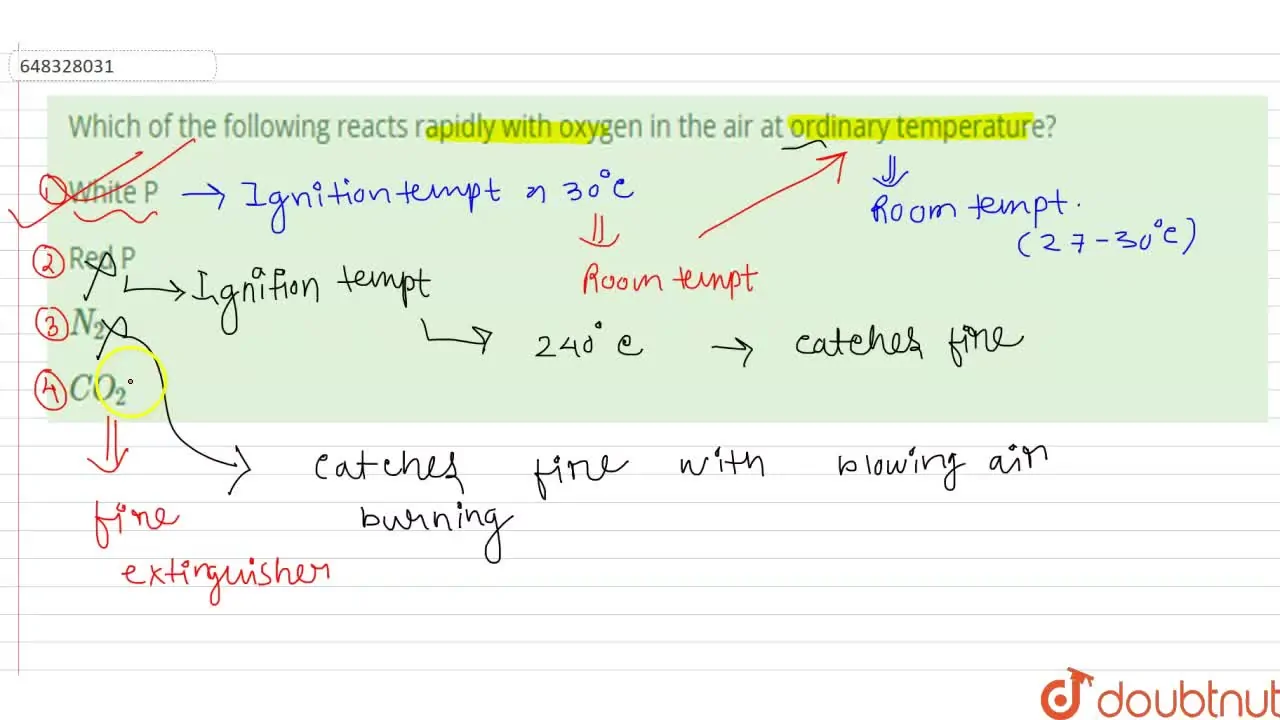 648328031
Which of the following reacts rapidly with oxygen in the air at ordinary temperature?
① White P → Ignition tempt ≈ 30°C
Room tempt.
(27-30°C)
② Red P
Room tempt
Ignition tempt
③ N₂
240°C → catches fire
④ CO₂
catches fire with blowing air
burning
fire
extinguisher
doubtnut